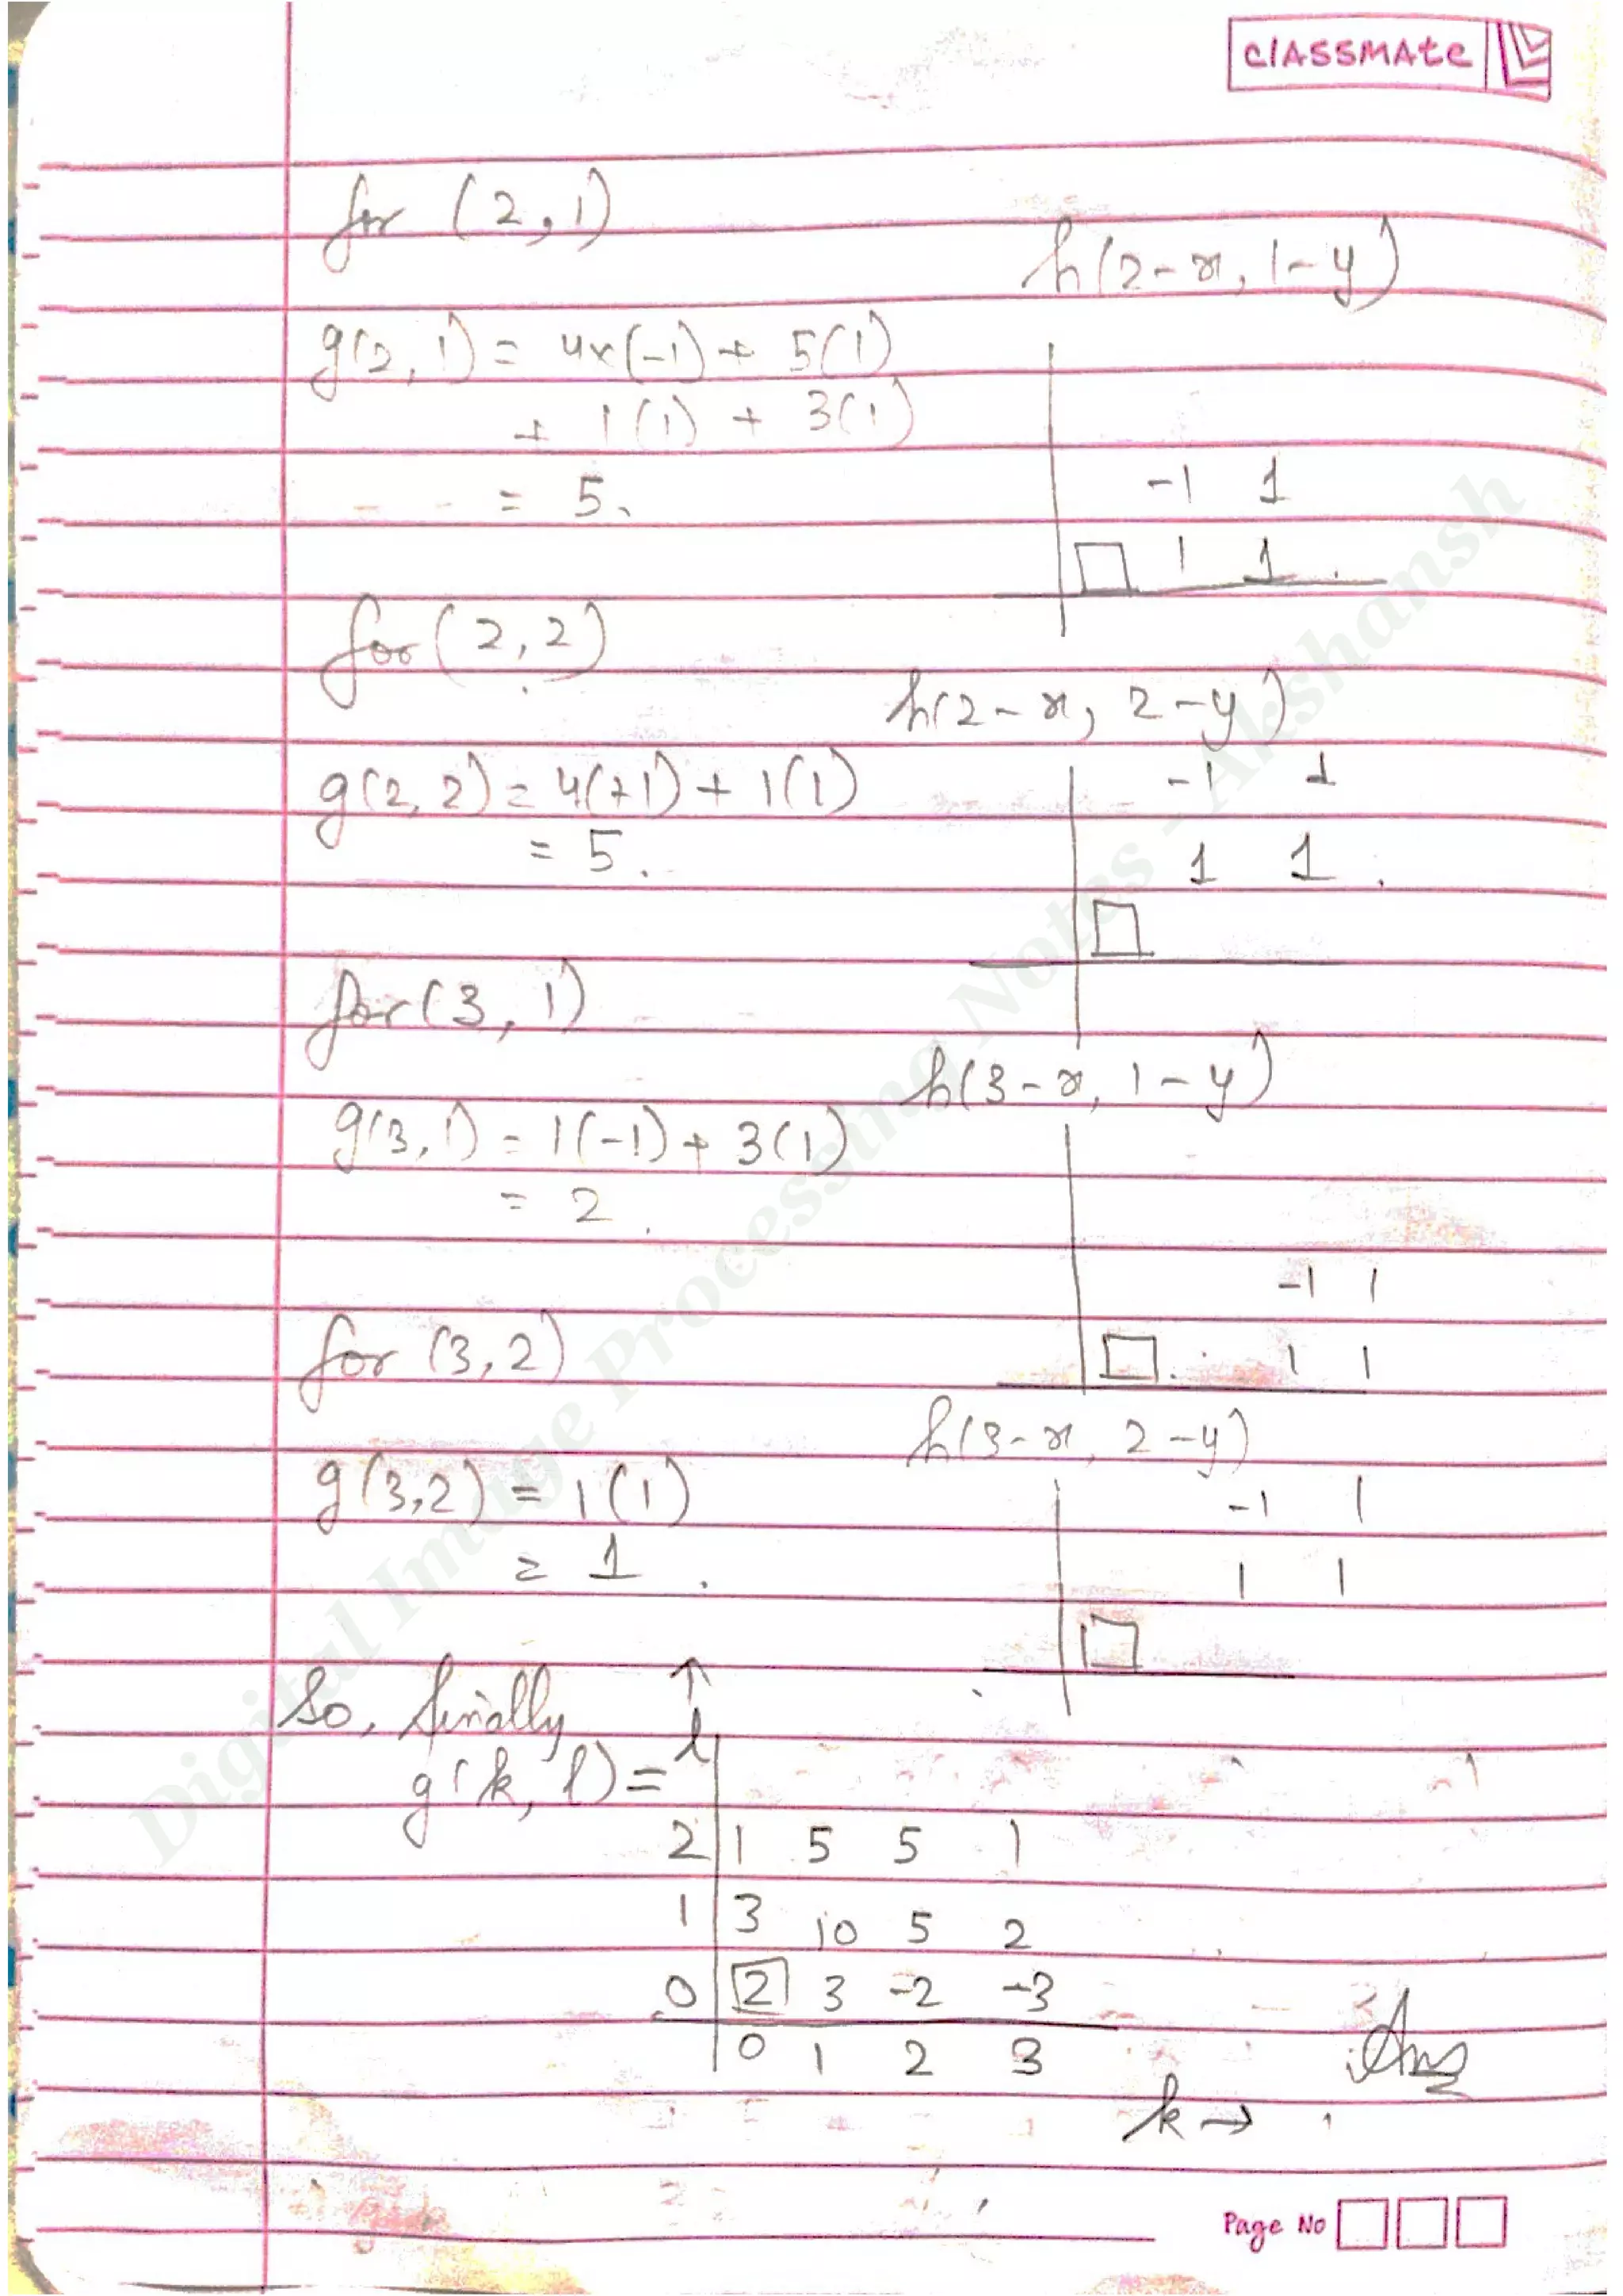 classmate
for (2,1)
h(2-x, 1-y)
g(2, 1) = 4x(-1) + 5(1)
+ 1(1) + 3(1)
-1 1
= 5.
1 1
for (2,2)
h(2-x, 2-y)
g(2, 2) = 4(+1) + 1(1)
-1 1
= 5.
1 1
for (3, 1)
h(3-x, 1-y)
g(3,1) = 1(-1) + 3(1)
= 2.
-1 1
for (3,2)
1 1
h(3-x, 2-y)
g(3,2) = 1(1)
-1 1
= 1.
1 1
So, finally
↑
l
g(k, l) =
2 1 5 5 1
1 3 10 5 2
0 2 3 -2 -3
0 1 2 3
Ans
k →
Page No
Digital Image Processing Notes - Akshansh